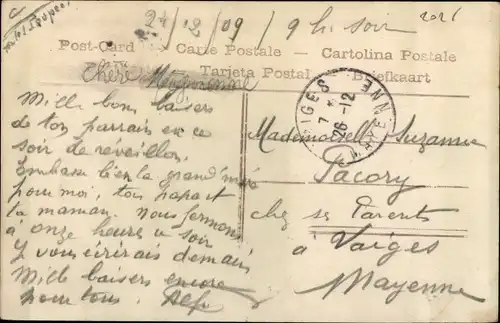 24/12/09 9 h. soir 2021
Post-Card Carte Postale - Cartolina Postale
Tarjeta Postal - Briefkaart
Chère Mignonne
Mille bons baisers
de ton parrain en ce
soir de réveillon.
Embrasse bien la grand'mère
pour moi, ton papa et
ta maman. Nous fermons
à onze heures ce soir
Je vous écrirais demain
Mille baisers encore
pour tous. Alf
VAIGES
7
26-12
MAYENNE
Mademoiselle Suzanne
Pacory
chez ses Parents
à Vaiges
Mayenne